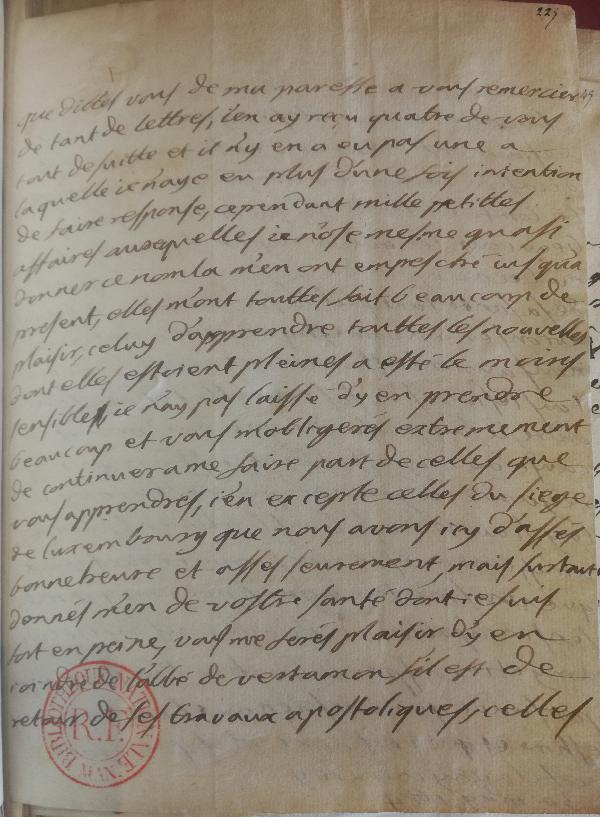 225
que dittes vous de ma paresse a vous remercier
de tant de lettres, i'en ay reçu quatre de vous
tout de suitte et il n'y en a eu pas une a
laquelle ie n'aye eu plus d'une fois intention
de faire response, cependant mille petittes
affaires auxquelles ie n'ose mesme quasi
donner ce nom la m'en ont empesché iusqua
present, elles m'ont touttes fait beaucoup de
plaisir, celuy d'apprendre touttes les nouvelles
dont elles estoient pleines a esté le moins
sensible, ie n'ay pas laissé d'y en prendre
beaucoup et vous m'obligerés extremement
de continuer a me faire part de celles que
vous apprendres, i'en excepte celles du siege
de luxembourg que nous avons icy d'asses
bonne heure et asses seurement, mais surtout
donnés m'en de vostre santé dont ie suis
fort en peine, vous me ferés plaisir d'y en
ioindre de l'abbé de vertamon s'il est de
retour de ses travaux apostoliques, celles
BIBLIOTHEQUE NATIONALE MSS
R.F.